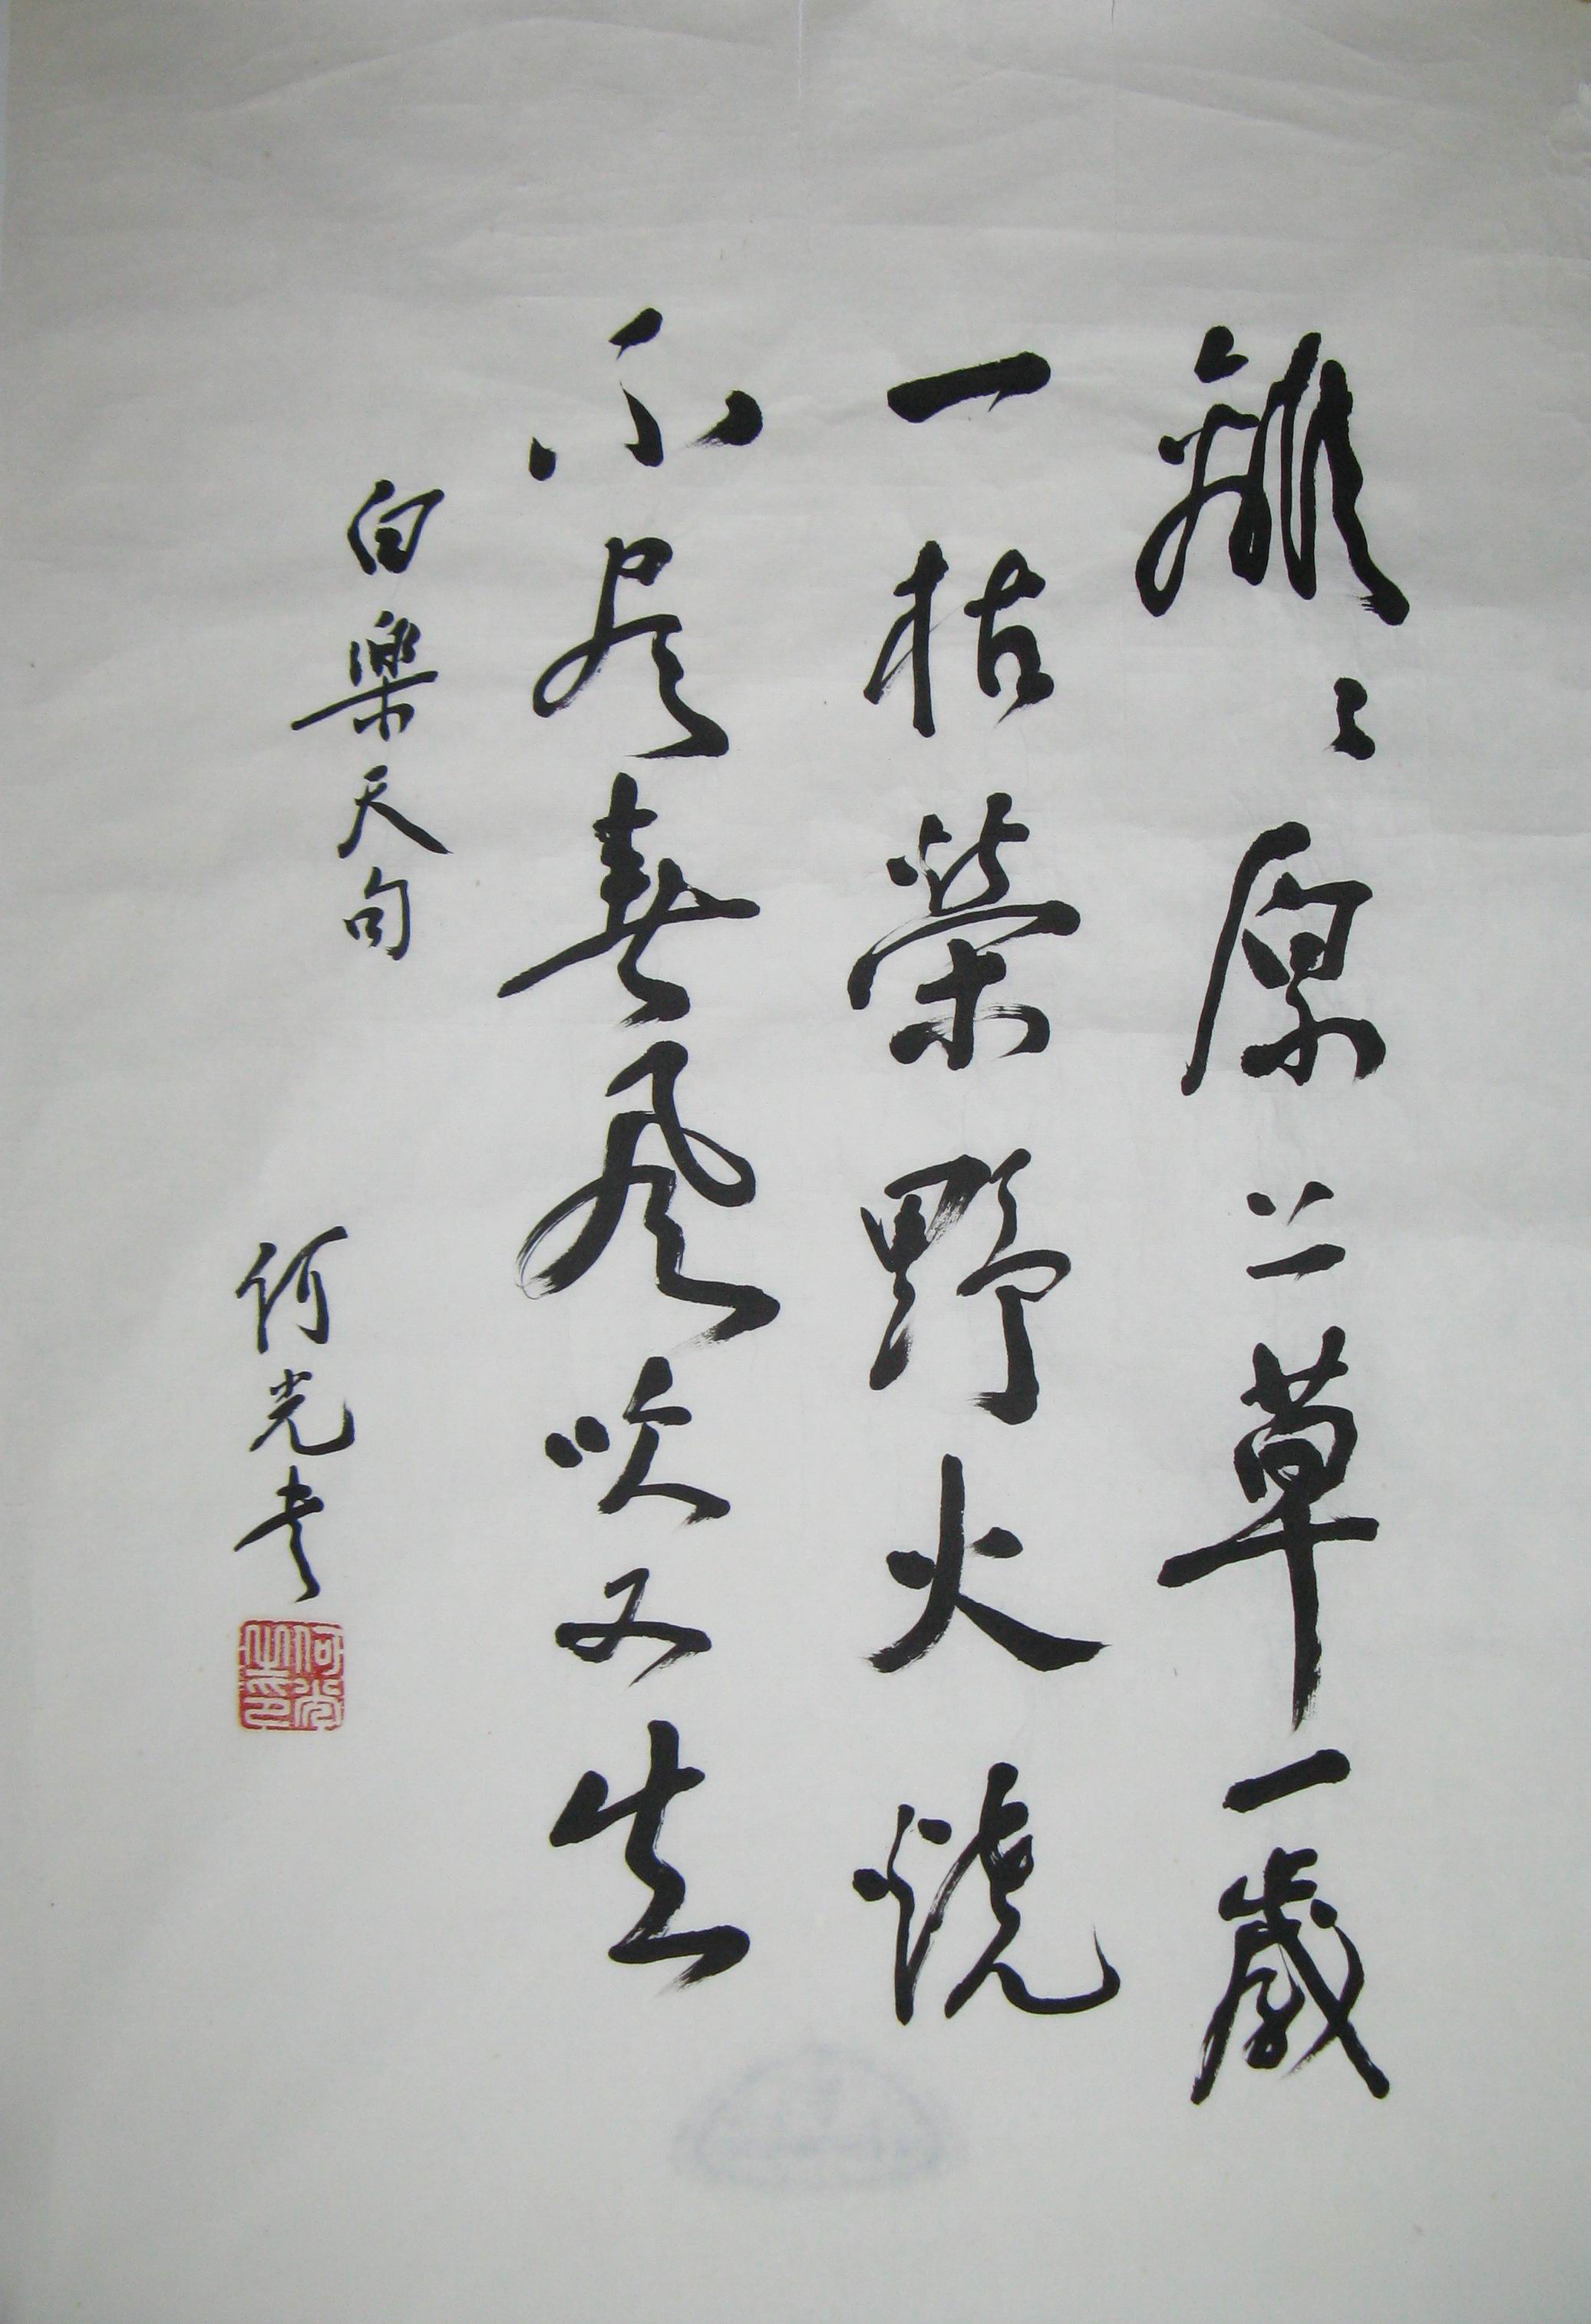 離々原上草一歲
一枯榮野火燒
不尽春風吹又生
白樂天句
何光書
何光之印